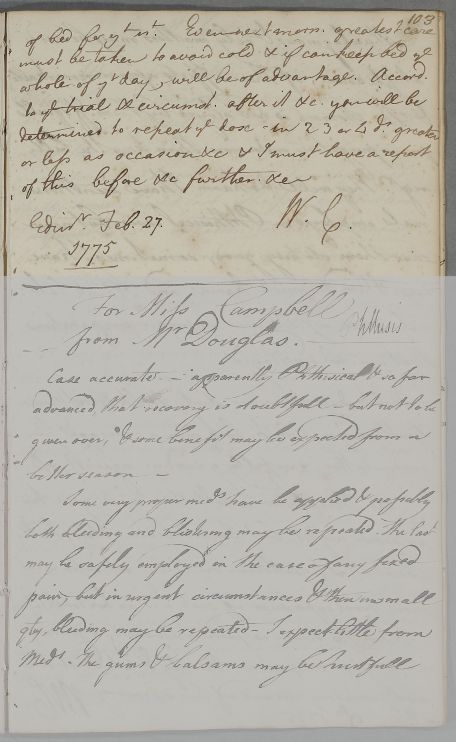 103
of bed for yt nt. Even next morn. greatest care
must be taken to avoid cold & if can keep bed ye
whole of yt day, will be of advantage. Accord.
to ye trial & circumst. after it &c. you will be
determined to repeat ye dose in 2 3 or 4 ds. greater
or less as occasion &c & I must have a report
of this before &c further. &c
Edinr. Feb. 27. W. C.
1775
For Miss Campbell
from Mr Douglas. Phthisis
Case accurate - apparently Phthisical & so far
advanced, that recovery is doubtfull - but not to be
given over, & some benefit may be expected from a
better season -
Some very proper meds have be applied & possibly
both bleeding and blistering may be repeated. The last
may be safely employed in the case of any fixed
pain, but in urgent circumstances & then in small
qty, bleeding may be repeated - I expect little from
Meds. The gums & balsams may be hurtfull